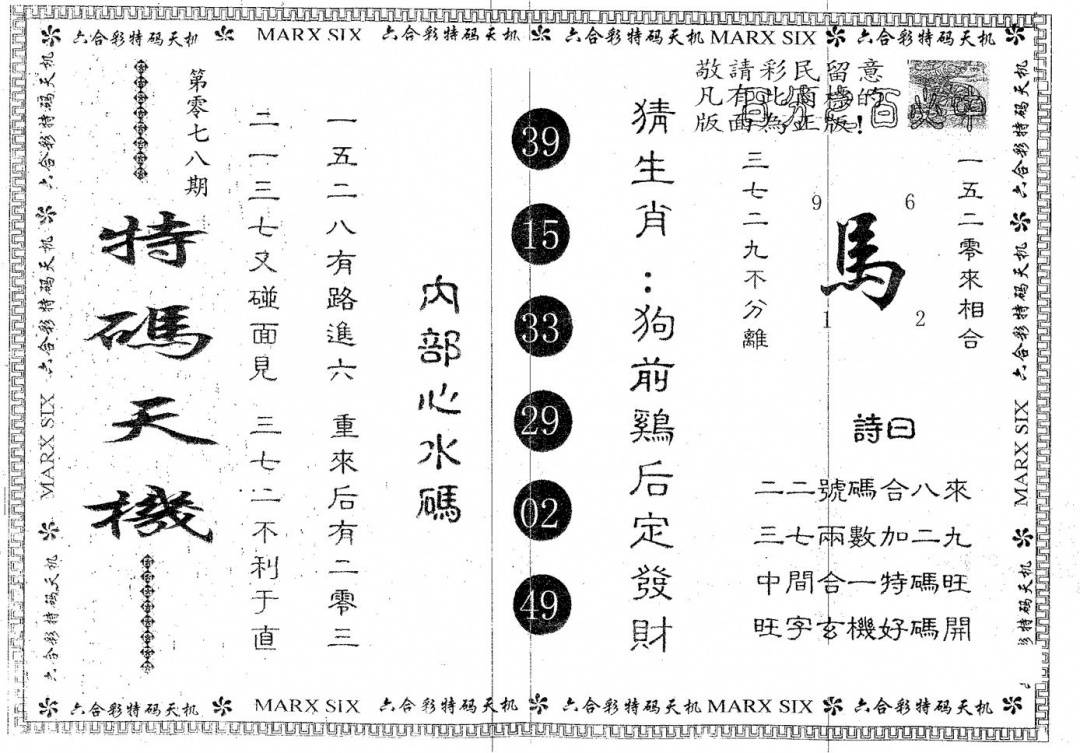 六合彩特码天机 MARX SIX 六合彩特码天机 六合彩特码天机 MARX SIX 六合彩特码天机
敬請彩民留意
版面為正版!
一五二零來相合
9 6
馬
1 2
三七二九不分離
詩曰
二二號碼合八來
三七兩數加二九
中間合一特碼旺
旺字玄機好碼開
猜生肖：狗前鷄后定發財
39
15
33
29
02
49
內部心水碼
一五二八有路進六 重來后有二零三
二一三七又碰面見 三七二不利于直
第零七八期
特碼天機
六合彩特码天机 六合彩特码天机 六合彩特码天机 MARX SIX 六合彩特码天机
六合彩特码天机 六合彩特码天机 MARX SIX
六合彩特码天机 MARX SIX 六合彩特码天机 六合彩特码天机 MARX SIX 六合彩特码天机